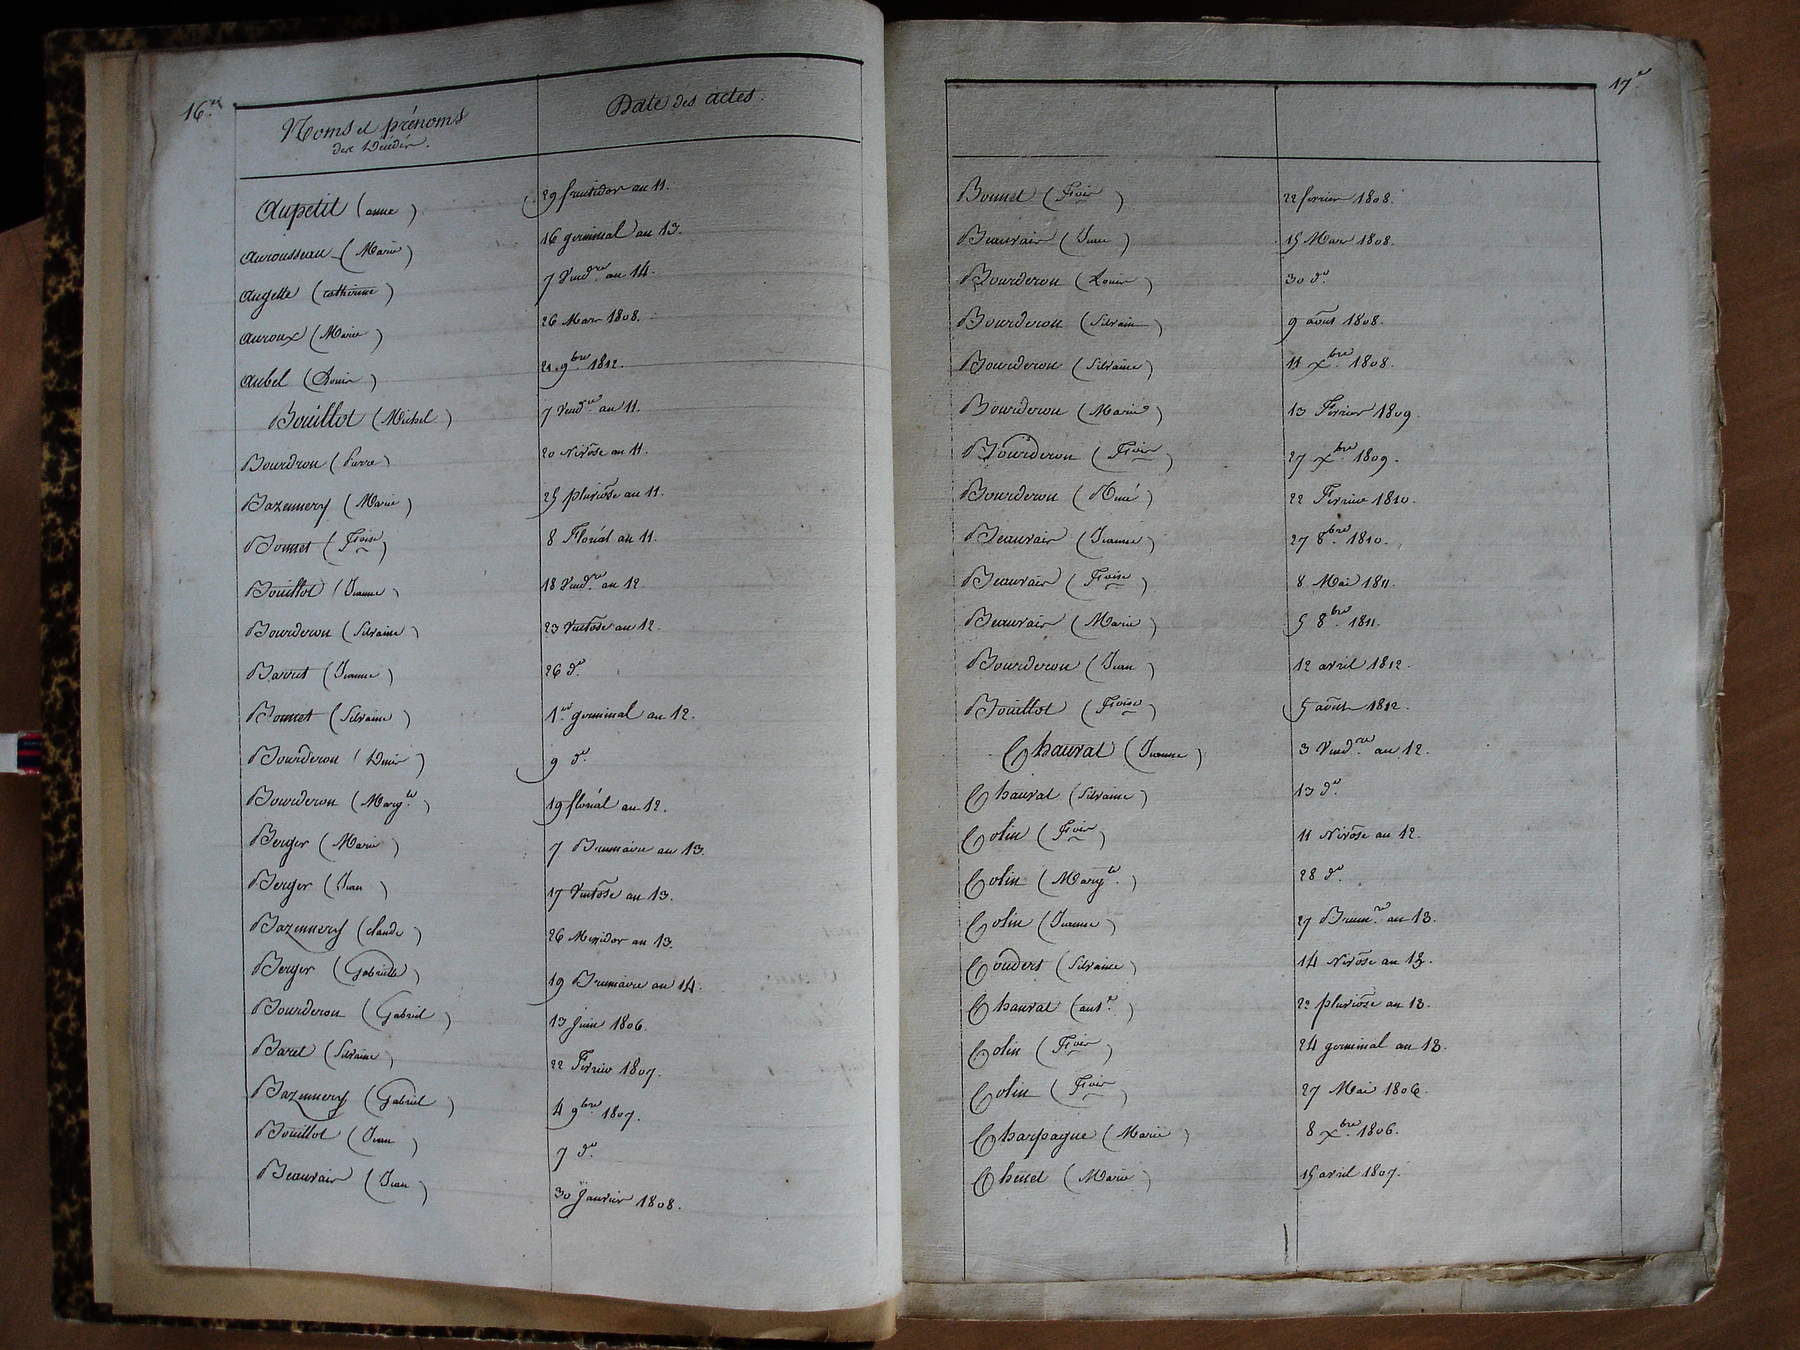 16.e
Noms et prénoms
des Décédés.
Date des actes.
Aupetit (anne) 29 fructidor an 11.
Aurousseau (Marie) 16 germinal an 13.
Augette (catherine) 7 Vend.re an 14.
Auroux (Marie) 26 Mars 1808.
Aubel (Louis) 21 9bre 1812.
Bouillot (Michel) 7 Vend.re an 11.
Bourdron (Pierre) 20 Nivôse an 11.
Bazennery (Marie) 25 pluviôse an 11.
Bonnet (Froise) 8 Floréal an 11.
Bouillot (Jeanne) 18 Vend.re an 12.
Bourderon (Silvaine) 23 Ventôse an 12.
Barret (Jeanne) 26 d.o
Bonnet (Silvaine) 1.er germinal an 12.
Bourderon (Denis) 9 d.o
Bourderon (Marg.te) 19 floréal an 12.
Berger (Marie) 7 Brumaire an 13.
Berger (Jean) 17 Ventôse an 13.
Bazennery (claude) 26 Messidor an 13.
Berger (Gabrielle) 19 Brumaire an 14.
Bourderon (Gabriel) 13 Juin 1806.
Barel (Silvaine) 22 Février 1807.
Bazennery (Gabriel) 4 9bre 1807.
Bouillot (Jean) 7 d.o
Beauvais (Jean) 30 Janvier 1808.
17.e
Bonnet (Frois) 22 février 1808.
Beauvais (Jean) 15 Mars 1808.
Bourderon (Louis) 30 d.o
Bourderon (Silvain) 9 août 1808.
Bourderon (Silvaine) 11 Xbre 1808.
Bourderon (Marie) 13 Février 1809.
Bourderon (Frois) 27 Xbre 1809.
Bourderon (René) 22 Février 1810.
Beauvais (Jeanne) 27 8bre 1810.
Beauvais (Froise) 8 Mai 1811.
Beauvais (Marie) 5 8bre 1811.
Bourderon (Jean) 12 avril 1812.
Bouillot (Froise) 5 août 1812.
Chauvat (Jeanne) 3 Vend.re an 12.
Chauvat (Silvaine) 13 d.o
Colin (Frois) 11 Nivôse an 12.
Colin (Marg.te) 28 d.o
Colin (Jeanne) 27 Brum.re an 13.
Coudert (Silvaine) 14 Nivôse an 13.
Chauvat (ant.e) 22 pluviôse an 13.
Colin (Frois) 24 germinal an 13.
Colin (Frois) 27 Mai 1806.
Charpagne (Marie) 8 Xbre 1806.
Chenet (Marie) 15 avril 1807.